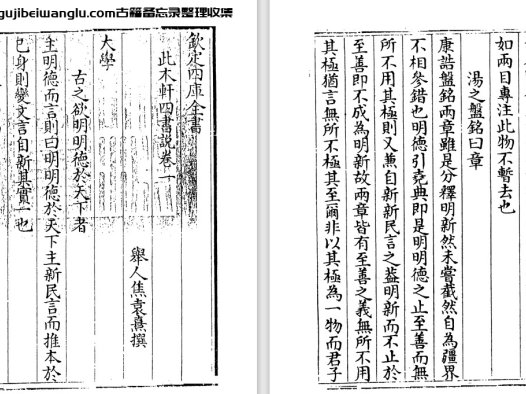 gujibeiwanglu.com古籍备忘录整理收集
欽定四庫全書
此木軒四書說卷一
舉人焦袁熹撰
大學
古之欲明明德於天下者
主明德而言則曰明明德於天下主新民言而推本於
已身則變文言自新其實一也
如兩目專注此物不暫去也
湯之盤銘曰章
康誥盤銘兩章雖是分釋明新然未嘗截然自為疆界
不相參錯也明德引堯典即是明明德之止至善而無
所不用其極則又兼自新新民言之蓋明新而不止於
至善即不成為明新故兩章皆有至善之義無所不用
其極猶言無所不極其至爾非以其極為一物而君子